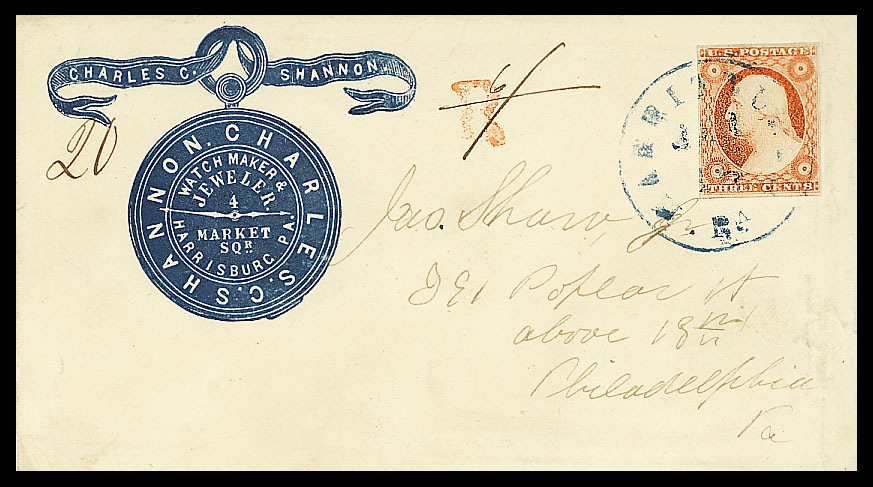 CHARLES C. SHANNON
CHARLES C. SHANNON.
WATCH MAKER &
JEWELER.
4
MARKET
SQR.
HARRISBURG PA.
20
6/
U.S. POSTAGE
THREE CENTS
HARRISBURG
Pa
Jas. Shaw, Jr.
Poplar St
above 18th
Philadelphia
Pa